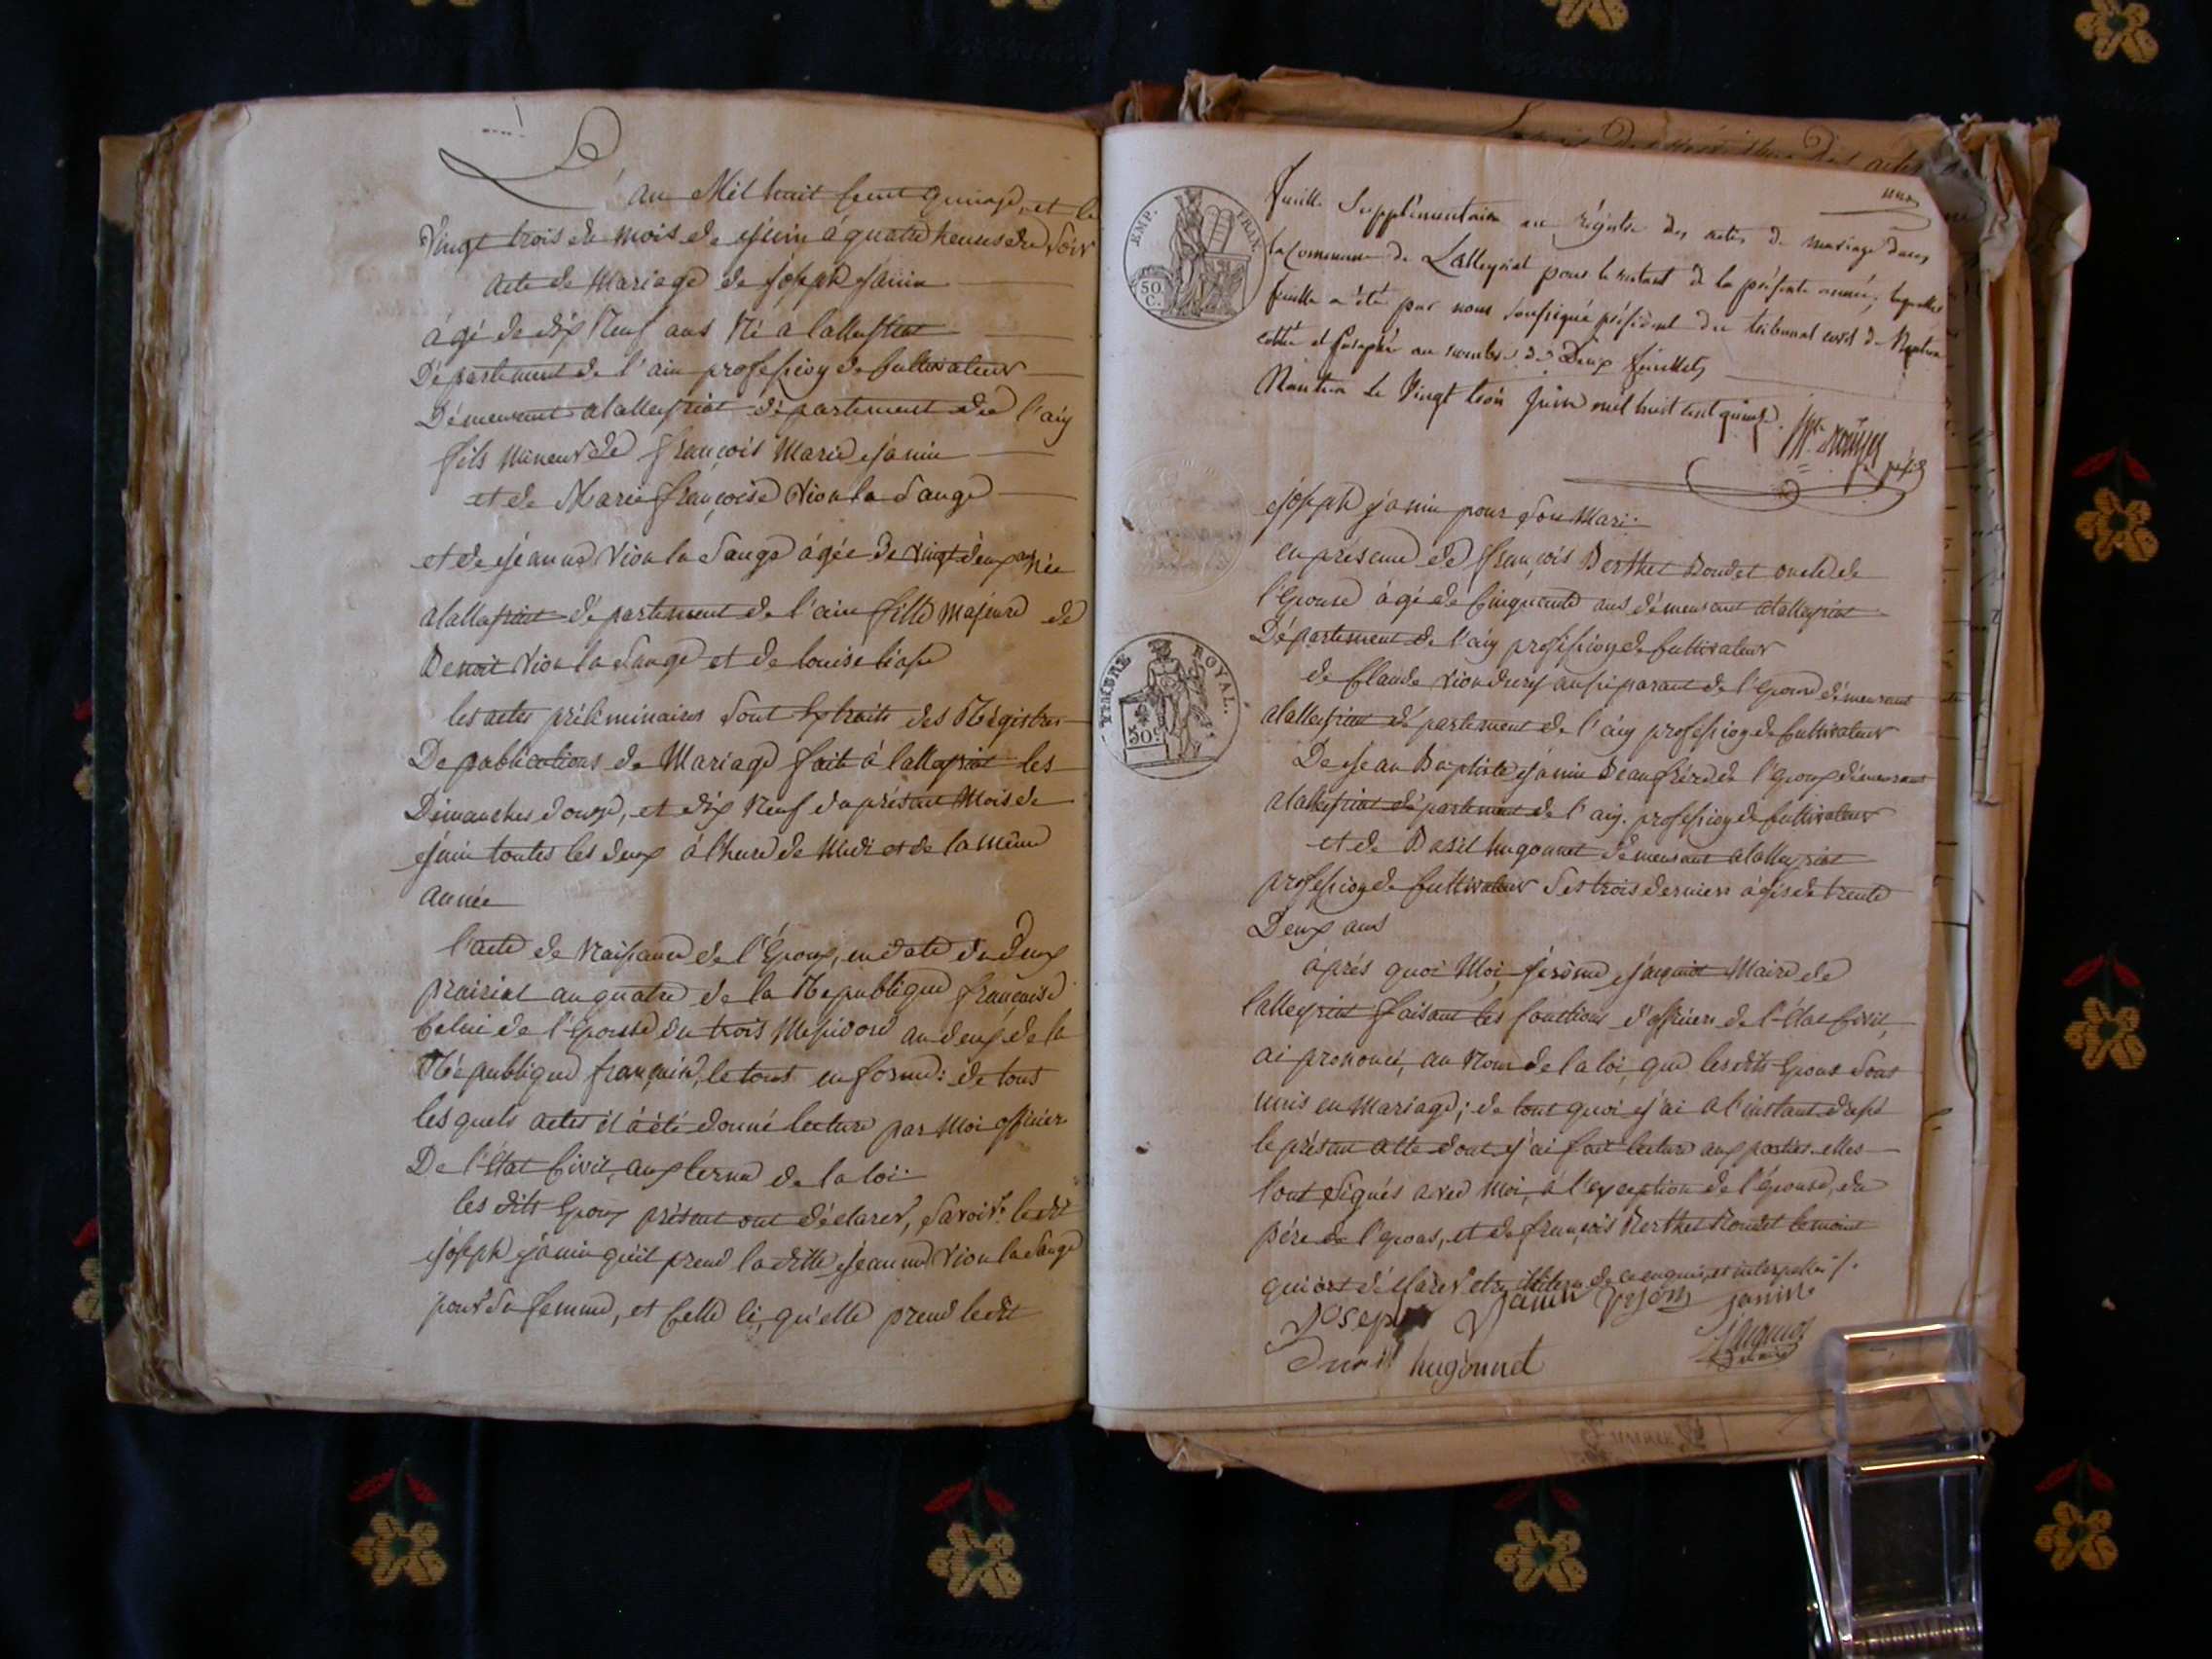 L'an Mil huit Cent quinze, et le
Vingt trois du mois de Juin à quatre heures du Soir
acte de Mariage de Joseph Janin
âgé de dix Neuf ans Né a lalleyriat
Département de l'ain profession de Cultivateur
Démeurant alalleyriat département de l'ain
fils Mineur de François Marie Janin
et de Marie françoise Vion la Sange
et de Jeanne Vion la Sange âgée de vingt deux ans Née
alalleyriat département de l'ain fille Majeure de
Benoit Vion la Sange et de louise
les actes préliminaires Sont Extraits des Régistres
De publications de Mariage fait à lalleyriat les
Dimanches douze, et dix Neuf du présent Mois de
Juin toutes les deux à l'heure de Midi et de la même
année
l'acte de Naissance de l'Epoux, en date du Deux
prairial an quatre de la Republique française
Celui de l'Epouse du trois Messidore an deux de la
République française, le tout en forme: de tous
les quels actes il à été donné lecture par Moi officier
De l'Etat Civil, aux terme de la loi
les dits Epoux présent ont déclarer, Savoir: ledit
Joseph Janin qu'il prend la ditte Jeanne Vion la Sange
pour Sa femme, et Celle ci, qu'elle prend ledit
EMP. FRAN.
50 C.
feuille Supplémentaire au régistre des actes de mariage dans
la Commune de Lalleyriat pour le restant de la présente année, laquelle
feuille a été par nous soussigné président du tribunal civil de Nantua
cottée et paraphée au nombre de Deux feuillets
Nantua le Vingt trois Juin mil huit cent quinze.
TIMBRE ROYAL.
50c
Joseph Janin pour Son Mari.
en présence de François Berthet Bondet oncle de
l'Epouse âgé de Cinquante ans démeurant alalleyriat
Département de l'ain profession de Cultivateur
de Claude Vion aussi parant de l'Epouse démeurant
alalleyriat département de l'ain profession de Cultivateur
De Jean Baptiste Janin Beau frére de l'Epoux démeurant
alalleyriat département de l'ain. profession de Cultivateur
et de Basil hugonnet démeurant alalleyriat
profession de Cultivateur Ses trois derniers âgés de trente
Deux ans
âprés quoi Moi, Jerôme Jacquiot Maire de
lalleyriat faisant les fonctions d'officier de l'État Civil,
ai prononcé, au Nom de la loi, que les dits Epoux Sont
unis en Mariage; de tout quoi J'ai a l'instant dressé
le présent acte dont J'ai fait lecture aux parties elles
l'ont Signés avec Moi, à l'exception de l'épouse, du
pére de l'epoux, et de françois Berthet Bondet témoint
qui ont déclarer etre illitere de ce enquis, et interpellés /.
Joseph Janin Janin
hugonnet